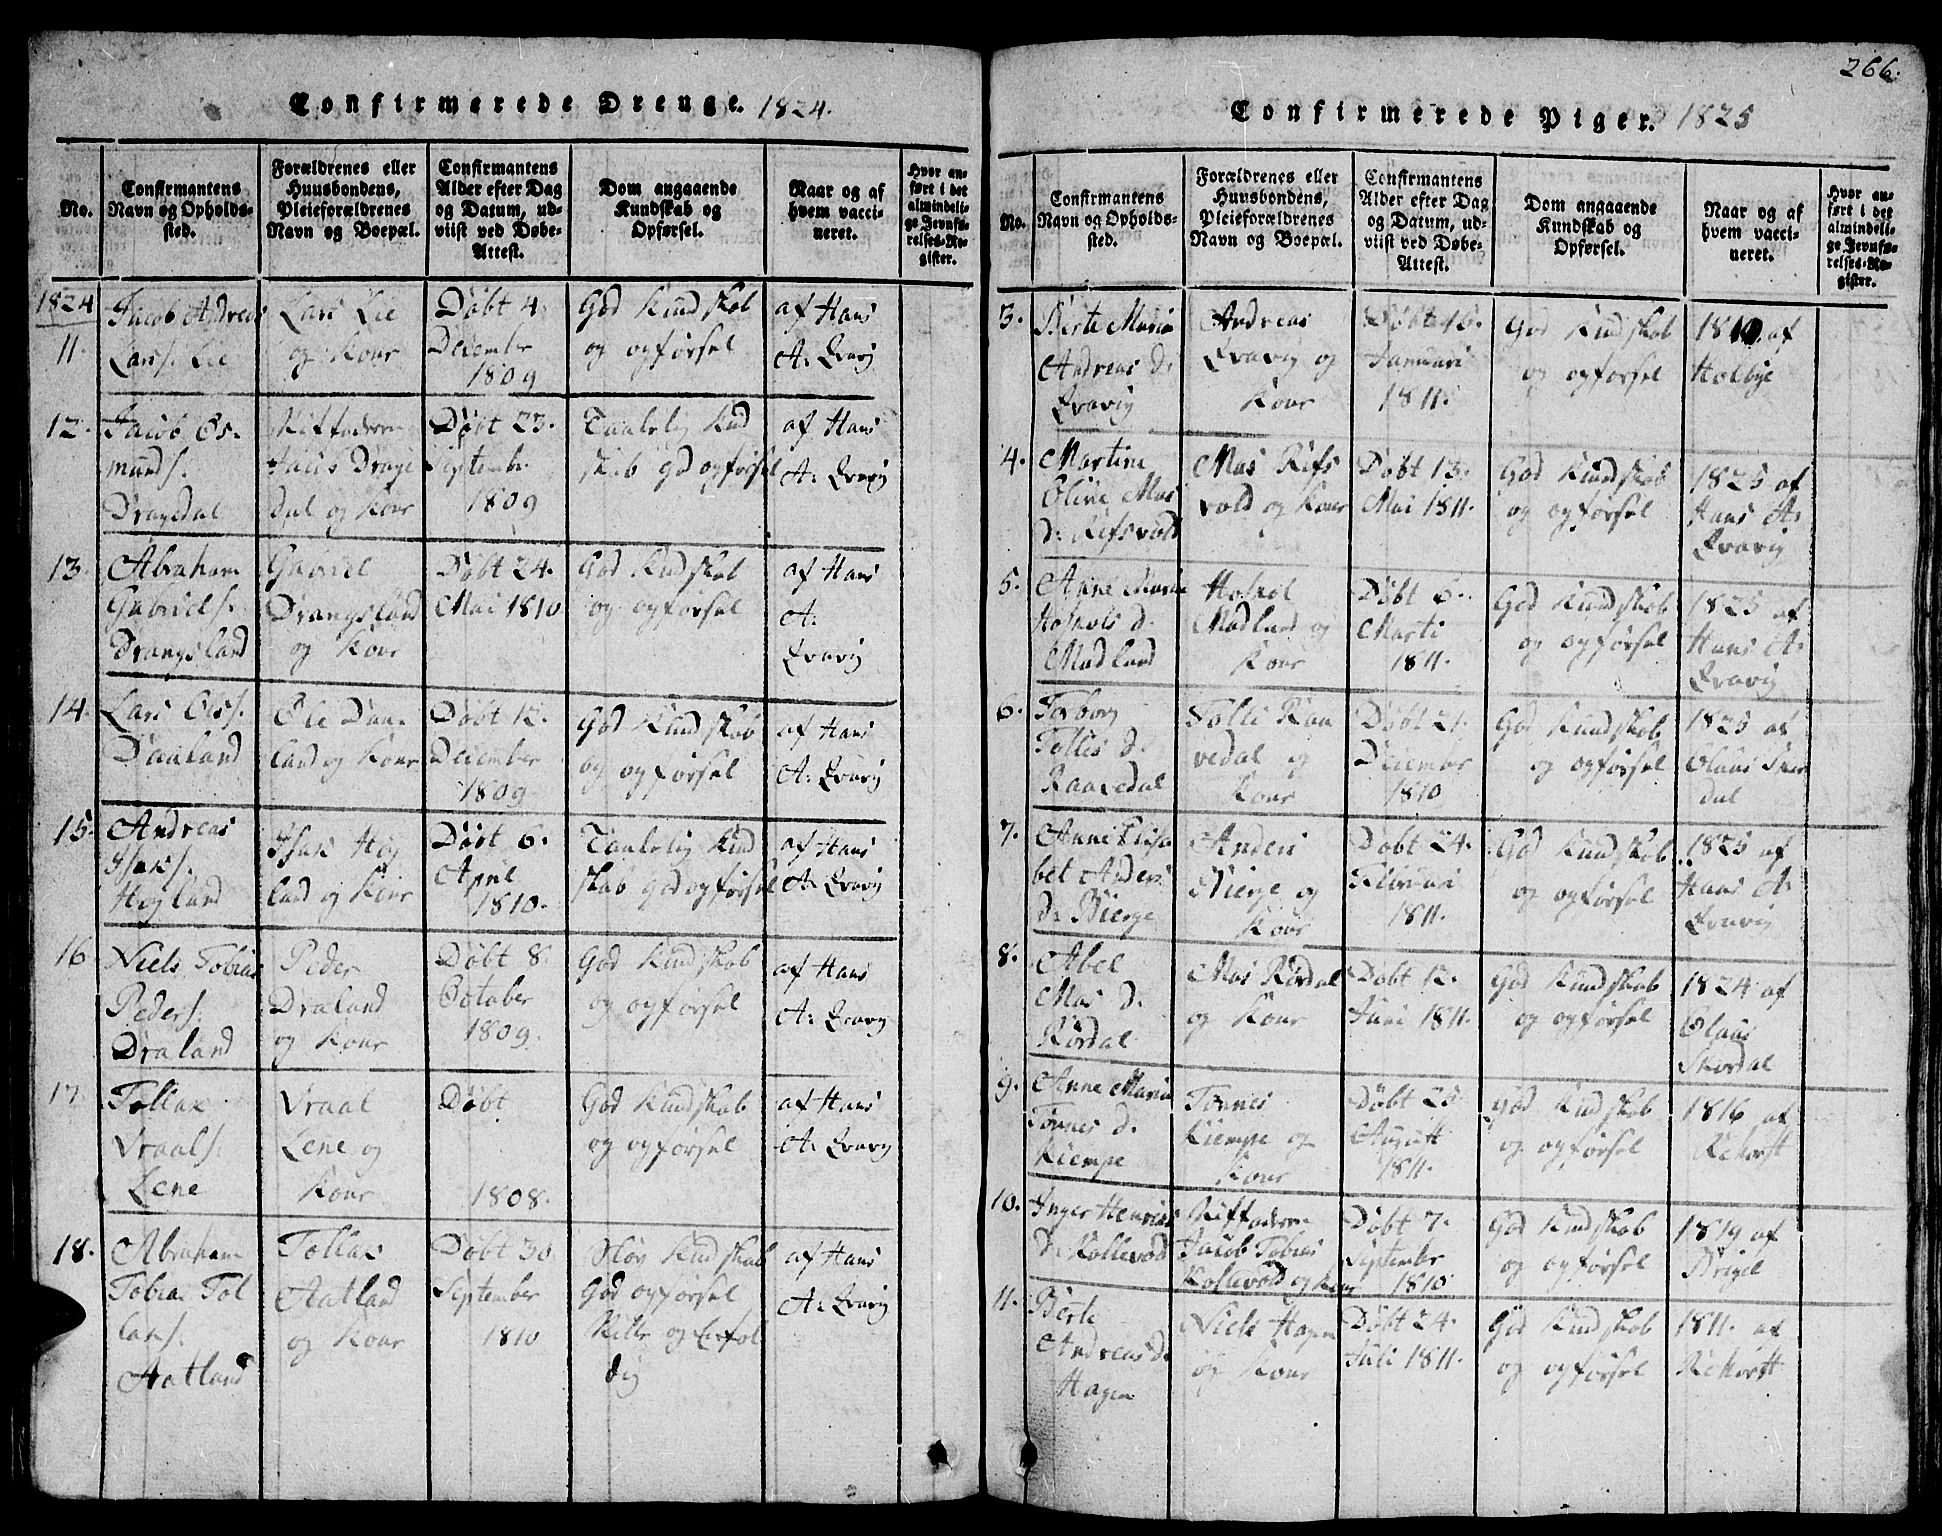 266.
Confirmerede Drenge. 1824.
No.
Confirmantens
Navn og Opholds-
sted.
Forældrenes eller
Huusbondens,
Pleieforældrenes
Navn og Boepæl.
Confirmantens
Alder efter Dag
og Datum, ud-
viist ved Døbe-
Attest.
Dom angaaende
Kundskab og
Opførsel.
Naar og af
hvem vacci-
neret.
Hvor an-
ført i det
almindeli-
ge Jevnfø-
relses-Re-
gister.
1824
11.
Jacob Andreas
Lars s. Lie
Lars Lie
og Kone
Døbt 4.
December
1809
God Kundskab
og opførsel
af Hans
A: Eravig
12.
Jacob Os-
mund s.
Dragedal
Jacob Drage
dal og Kone
Døbt 23.
September
1809
Taalelig Kund
skab god opførsel
af Hans
A: Eravig
13.
Abraham
Gabriels s.
Drangsland
Gabriel
Drangsland
og Kone
Døbt 24.
Mai 1810
God Kundskab
og opførsel
af Hans
A:
Eravig
14.
Lars Ols s.
Daaland
Ole Daa-
land og Kone
Døbt 12.
December
1809
God Kundskab
og opførsel
af Hans
A: Eravig
15.
Andreas
Isaks s.
Høyland
Isak Høy
land og Kone
Døbt 6.
April
1810.
Taalelig Kund
skab God opførsel
af Hans
A: Eravig
16
Niels Tobias
Peders s.
Draland
Peder
Draland
og Kone
Døbt 8.
October
1809.
God Kundskab
og opførsel
af Hans
A: Eravig
17
Tollak
Vraals s.
Lene
Vraal
Lene og
Kone
Døbt
1808.
God Kundskab
og opførsel
af Hans
A: Eravig
18.
Abraham
Tobias Tol
laks s.
Aatland
Tollak
Aatland
og Kone
Døbt 30
September
1810
Sløv Kundskab
God opførsel
Stille og Eenfol
dig
af Hans
A: Eravig
Confirmerede Piger. 1825
No.
Confirmantens
Navn og Opholds-
sted.
Forældrenes eller
Huusbondens,
Pleieforældrenes
Navn og Boepæl.
Confirmantens
Alder efter Dag
og Datum, ud-
viist ved Døbe-
Attest.
Dom angaaende
Kundskab og
Opførsel.
Naar og af
hvem vacci-
neret.
Hvor an-
ført i det
almindeli-
ge Jevnfø-
relses-Re-
gister.
3.
Berte Maria
Andreas d.
Eravig
Andreas
Eravig og
Kone
Døbt 16.
Januari
1811.
God Kundskab
og opførsel
af
Holbye
4.
Martine
Oline Mas
d: Refsvold
Mas Refs
vold og Kone
Døbt 13.
Mai 1811.
God Kundskab
og opførsel
1825 af
Hans A:
Eravig
5.
Anne Marie
Hoskols d.
Madland
Hoskol
Madland og
Kone
Døbt 6.
Marti
1811.
God Kundskab
og opførsel
1825 af
Hans A:
Eravig
6.
Torborg
Tollis d.
Raavedal
Tolli Raa
vedal og
Kone
Døbt 21.
Decembr
1810
God Kundskab
og opførsel
1825 af
Olaus Skor
dal
7.
Anne Elisa
bet Anders
d: Bierge
Anders
Bierge og
Kone
Døbt 24.
Februari
1811.
God Kundskab
og opførsel
1825 af
Hans A:
Eravig
8.
Abel
Mas d.
Rørdal
Mas Rørdal
og Kone
Døbt 12.
Juni 1811.
God Kundskab
og opførsel
1824 af
Olaus
Skordal
9.
Anne Maria
Tønnes d.
Kiempe
Tønnes
Kiempe og
Kone
Døbt 25
August
1811.
God Kundskab
og opførsel
1816 af
Rekorst
10.
Inger Henriks
d: Kollevold
Jacob Tobias
Kollevold og Kone
Døbt 7.
Septembr
1810
God Kundskab
og opførsel
1819 af
11.
Berte
Andreas d.
Hagen
Niels Hagen
og Kone
Døbt 24.
Juli 1811.
God Kundskab
og opførsel
1811. af
Rekorst